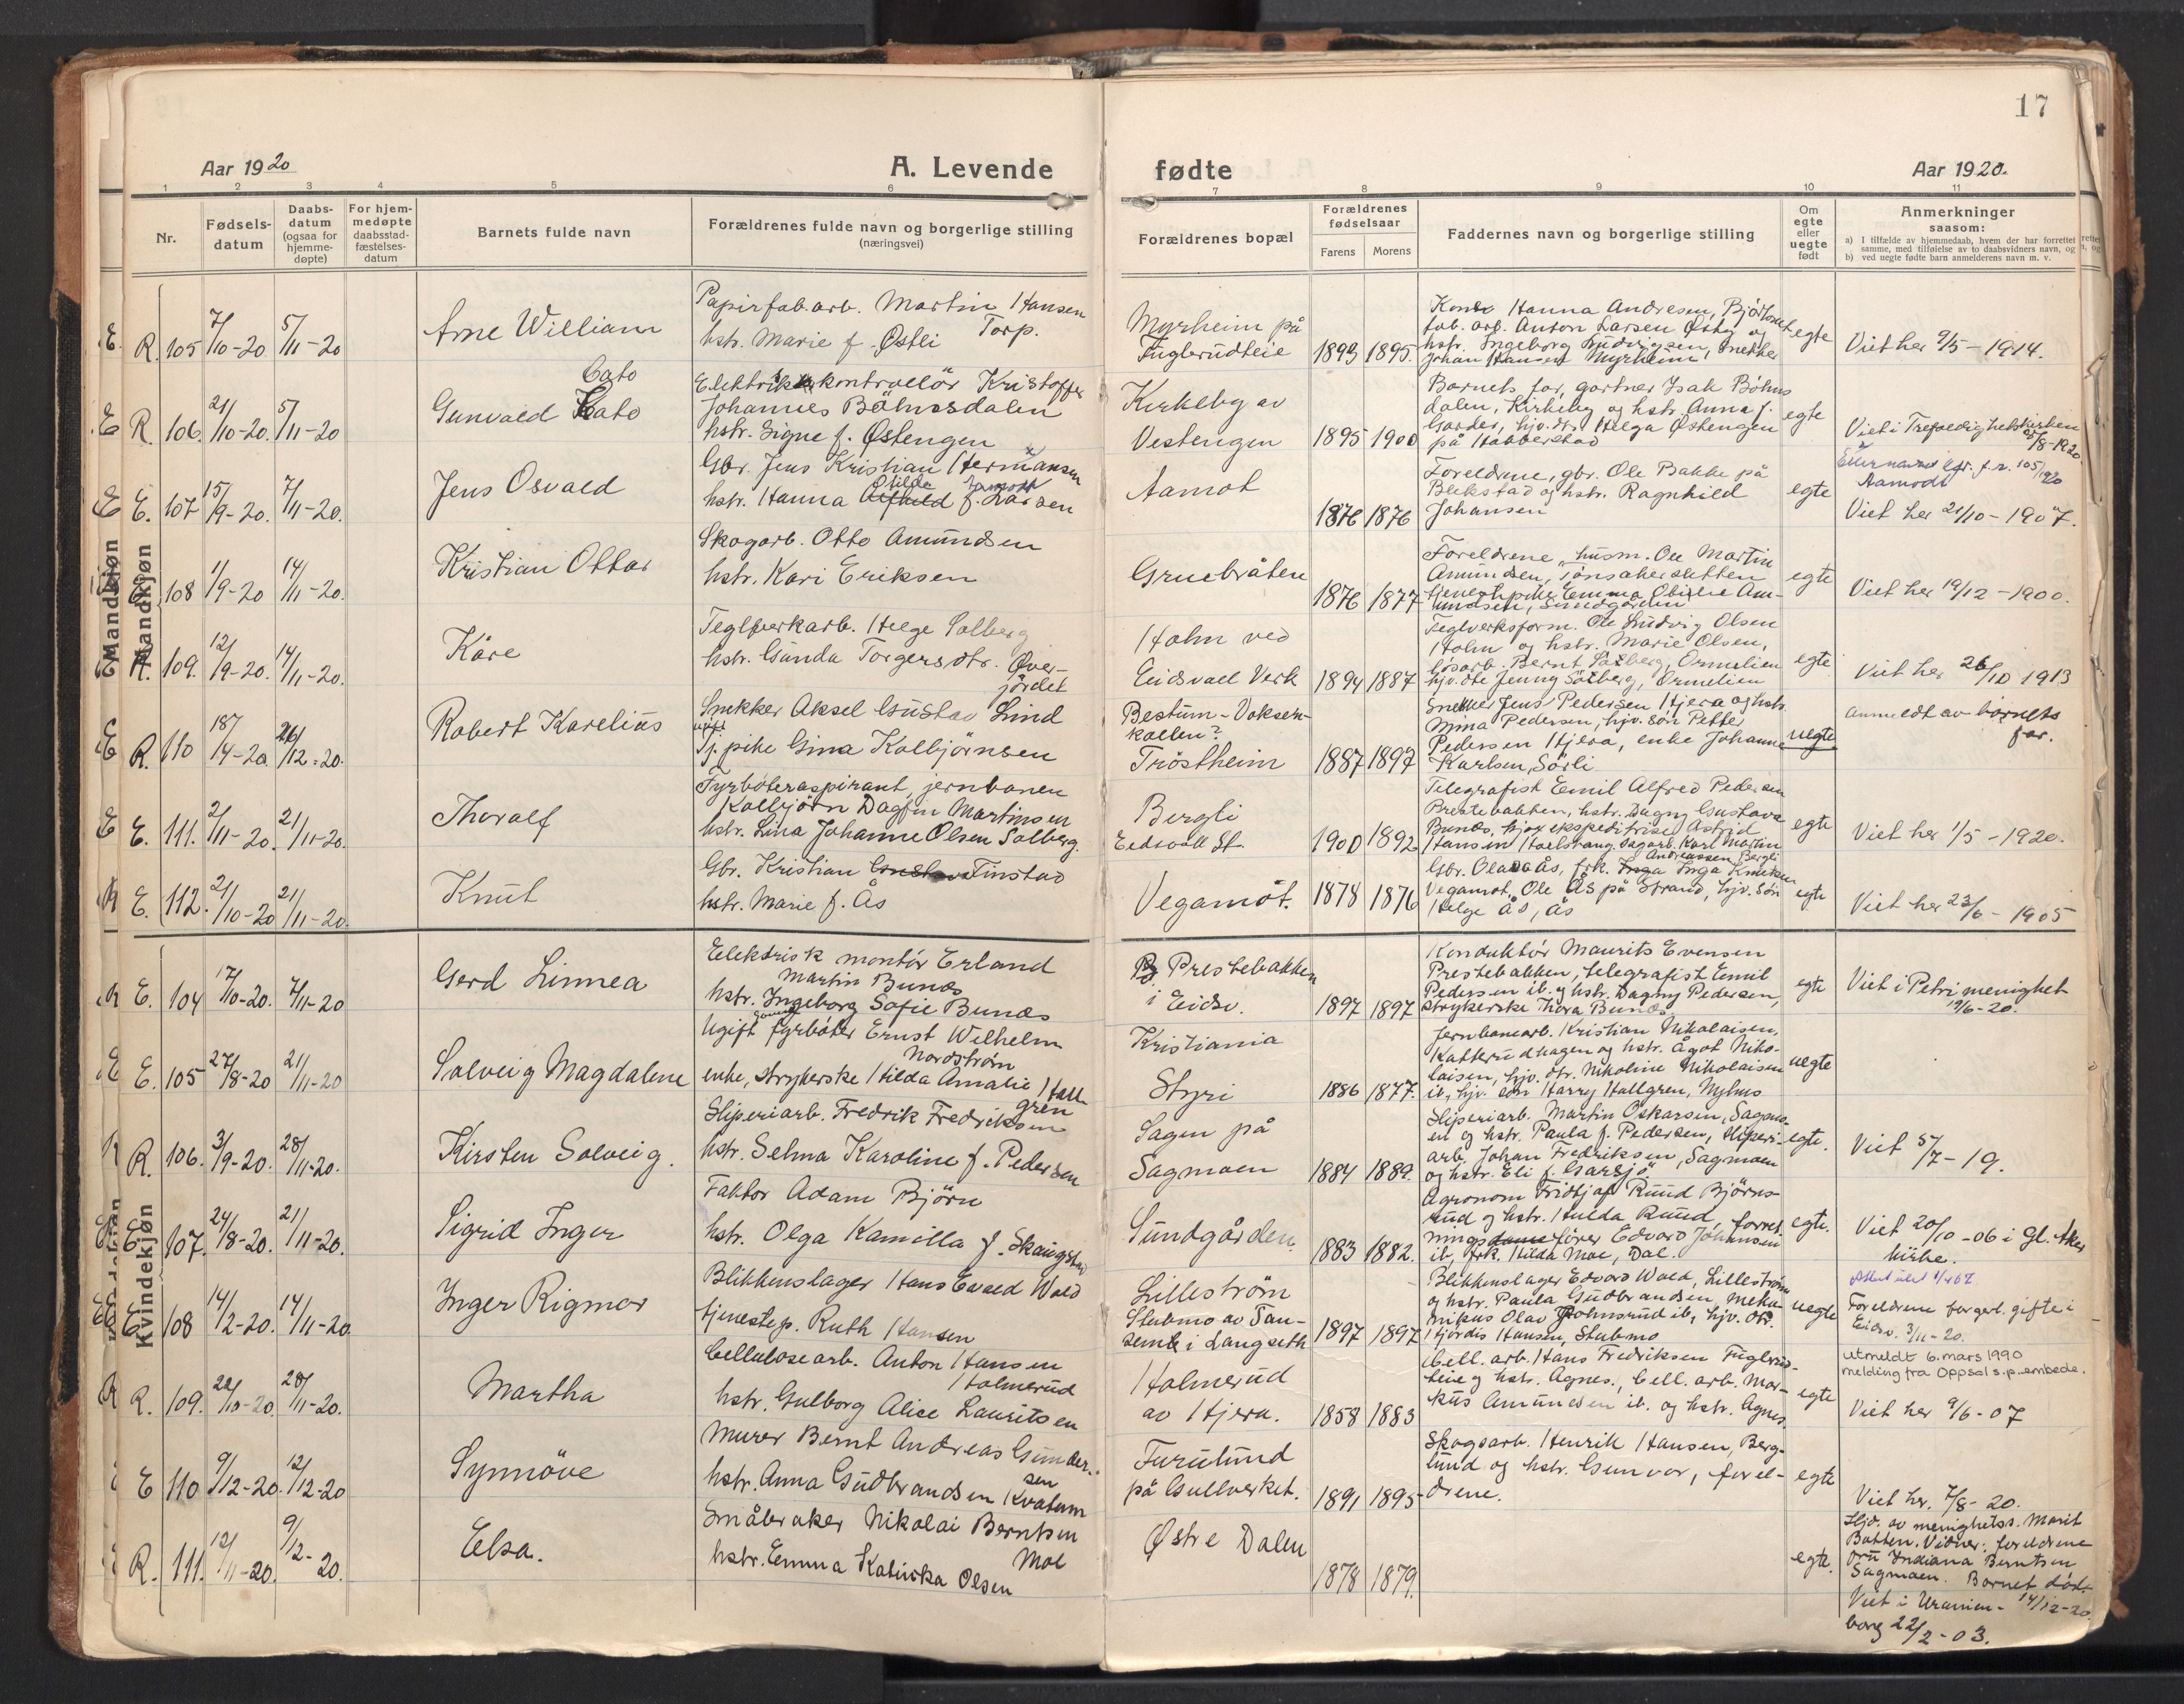 17
Aar 1920
A. Levende
fødte
Aar 1920.
1 2 3 4 5 6 7 8 9 10 11
Nr.
Fødsels-
datum
Daabs-
datum
(ogsaa for
hjemme-
døpte)
For hjem-
medøpte
daabsstad-
fæstelses-
datum
Barnets fulde navn
Forældrenes fulde navn og borgerlige stilling
(næringsvei)
Forældrenes bopæl
Forældrenes
fødselsaar
Farens Morens
Faddernes navn og borgerlige stilling
Om
egte
eller
uegte
født
Anmerkninger
saasom:
a) I tilfælde av hjemmedaab, hvem der har forrettet
samme, med tilføielse av to daabsvidners navn, og
b) ved uegte fødte barn anmelderens navn m. v.
Mandkjøn
Mandkjøn
R. 105 7/10-20 5/11-20
Arne William
Papirfab.arb. Martin Hansen
Torp.
hstr. Marie f. Østli
Myrheim på
Fuglerudteie
1893 1895.
Hanna Andresen,
fab. arb. Anton Larsen Østby og
hstr. Ingeborg Ludvigsen, snekker
Johan Hansen Myrheim
egte
Viet her 9/5-1914.
R. 106. 21/10-20. 5/11-20
Cato
Gunvald Kato
kontrollör Kristoffer
Johannes Böhnsdalen
hstr. Signe f. Østengen
Kirkeby av
Vestengen
1895 1900
Barnets far, gartner Isak Böhns
dalen, Kirkeby og hstr. Anna f.
Garder, hjv. dtr. Helga Østengen
på Habberstad
egte
Viet i Trefoldighetskirken
1920.
E. 107 15/9-20. 7/11-20.
Jens Osvald
Gbr. Jens Kristian Hermansen
Otilde
hstr. Hanna Alfhild f. Larsen
Aamot
1876 1876
Foreldrene, gbr. Ole Bakke på
Blekstad og hstr. Ragnhild
Johansen
egte
Etternavnet cfr. f.r. 105/20
Aamodt
Viet her 21/10-1907.
108 1/9-20 14/11-20.
Kristian Ottar
Skogarb. Otto Amundsen
hstr. Kari Eriksen
Gruebråten
1876 1877
Foreldrene, husm. Ole Martin
Amundsen, Tønsakersletten
tjenestepike Emma Otilie Am-
undsen, Sundgården
egte
Viet her 19/12-1900.
R. 109. 12/9-20. 14/11-20.
Kåre
Teglverkarb. Helge Solberg
hstr. Gunda Torgersdtr. Över-
jördet
Holm ved
Eidsvoll Verk
1894 1887
Teglverksform. Ole Ludvig Olsen
Holm og hstr. Marie Olsen,
løsarb. Bernt Solberg, Ormelien
hjv. dtr. Jenny Solberg, Ormelien
egte
Viet her 26/10 1913
R. 110 18/4-20 26/12-20.
Robert Karelius
Snekker Aksel Gustav Lind
ugift
Tj. pike Gina Kolbjörnsen
Bestum-Voksen-
kollen?
Tröstheim
1887 1897
Snekker Jens Pedersen Hjera og hstr.
Mina Pedersen, hjv. sön Petter
Pedersen Hjera, enke Johanne
Karlsen, Sörli
uegte
Anmeldt av barnets
far.
E. 111. 2/11-20. 21/11-20.
Thoralf
Fyrböteraspirant, jernbanen
Kolbjörn Dagfin Martinsen
hstr. Lina Johanne Olsen Solberg.
Bergli
Eidsvoll St.
1900 1892
Telegrafist Emil Alfred Pedersen
Prestebakken, hstr. Dagny Gustava
Bunæs, hjv. ekspeditrise Astrid
Hansen Haelstvang. Sagarb. Karl Martin
Andreassen Bergli
egte
Viet her 1/5-1920.
E. 112. 21/10-20 21/11-20.
Knut
Gbr. Kristian Gustav Finstad
hstr. Marie f. Ås
Vegamot.
1878 1876
Gbr. Ola Ås, frk. Inga Knutsen
Vegamot, Ole Ås på Strand, hjv. sön
Helge Ås, Ås
egte
Viet her 23/6-1905
Kvindekjøn
E. 104 17/10-20. 7/11-20
Gerd Linnea
Elektrisk montör Erland
Martin Bunæs
hstr. Ingeborg Sofie Bunæs
Prestebakken
i Eidsv.
1897 1897
Konduktör Maurits Evensen
Prestebakken, telegrafist Emil
Pedersen ib. og hstr. Dagny Pedersen,
strykerske Thora Bunæs
egte
Viet i Petri menighet
19/6-20.
E. 105 27/8-20 21/11-20
Solveig Magdalene
Ugift fyrböter Ernst Wilhelm
Nordström
enke, strykerske Hilda Amalie Hall
gren
Kristiania
Styri
1886 1877.
Jernbanearb. Kristian Nikolaisen,
Katterudhagen og hstr. Ågot Niko-
laisen, hjv. dtr. Nikoline Nikolaisen
ib, hjv. sön Harry Hallgren, Nyhus
uegte
R. 106. 3/9-20. 28/11-20.
Kirsten Solveig.
Sliperiarb. Fredrik Fredriksen
hstr. Selma Karoline f. Pedersen
Sagen på
Sagmoen
1884 1889.
Sliperiarb. Martin Oskarsen, Sagmo-
en og hstr. Paula f. Pedersen, sliperi-
arb. Johan Fredriksen, Sagmoen
og hstr. Eli f. Garsjö
egte.
Viet 5/7-19.
E. 107. 24/8-20. 21/11-20.
Sigrid Inger
Faktor Adam Björn
hstr. Olga Kamilla f. Skaugstad
Sundgården.
1883 1882.
Agronom Fridtjof Ruud Björns-
rud og hstr. Hulda Ruud, forret-
ningsförer Edvard Johansen
ib, frk. Hilda Moe, Dal.
egte.
Viet 20/10-06 i Gl. Aker
kirke.
E. 108 14/2-20. 14/11-20
Inger Rigmor
Blikkenslager Hans Evald Wold
tjenestep. Ruth Hansen
Lilleström
Stubmo av
i Langseth
1897 1897
Blikkenslager Edvard Wold, Lilleström
og hstr. Paula Gudbrandsen, meka-
nikus Olav Holmsrud ib, hjv. dtr.
Hjördis Hansen, Stubmo
uegte
Foreldrene borgerl. gifte i
Eidsv. 3/11-20.
R. 109. 22/10-20 28/11-20.
Martha
Cellulosearb. Anton Hansen
Holmerud
hstr. Gulborg Alise Lauritsen
Holmerud
av Hjera.
1858 1883
Cell. arb. Hans Fredriksen Fuglerud-
teie og hstr. Agnes., Cell. arb. Mar-
kus Amundsen ib. og hstr. Agnes.
egte
utmeldt 6. mars 1990
melding fra Oppsal s.p.embede.
Viet her 9/6-07
E 110 9/12-20. 12/12-20
Synnöve
Murer Bernt Andreas Gunder-
sen
hstr. Anna Gudbrandsen Kvatum
Furulund
på Gullverket.
1891 1895
Skogsarb. Henrik Hansen, Berg-
lund og hstr. Gunvor, forel-
drene.
egte
Viet her. 7/8-20.
R. 111. 12/11-20. 9/12-20.
Elsa.
Småbruker Nikolai Berntsen
Moe
hstr. Emma Katinka Olsen
Østre Dalen
1878 1879.
egte.
Hjd. av menighetss. Marit
Batten. Vidner: foreldrene
og Indiana Berntsen
Sagmoen. Barnet död
14/12-20.
Viet i Uranien-
borg 22/2-03.